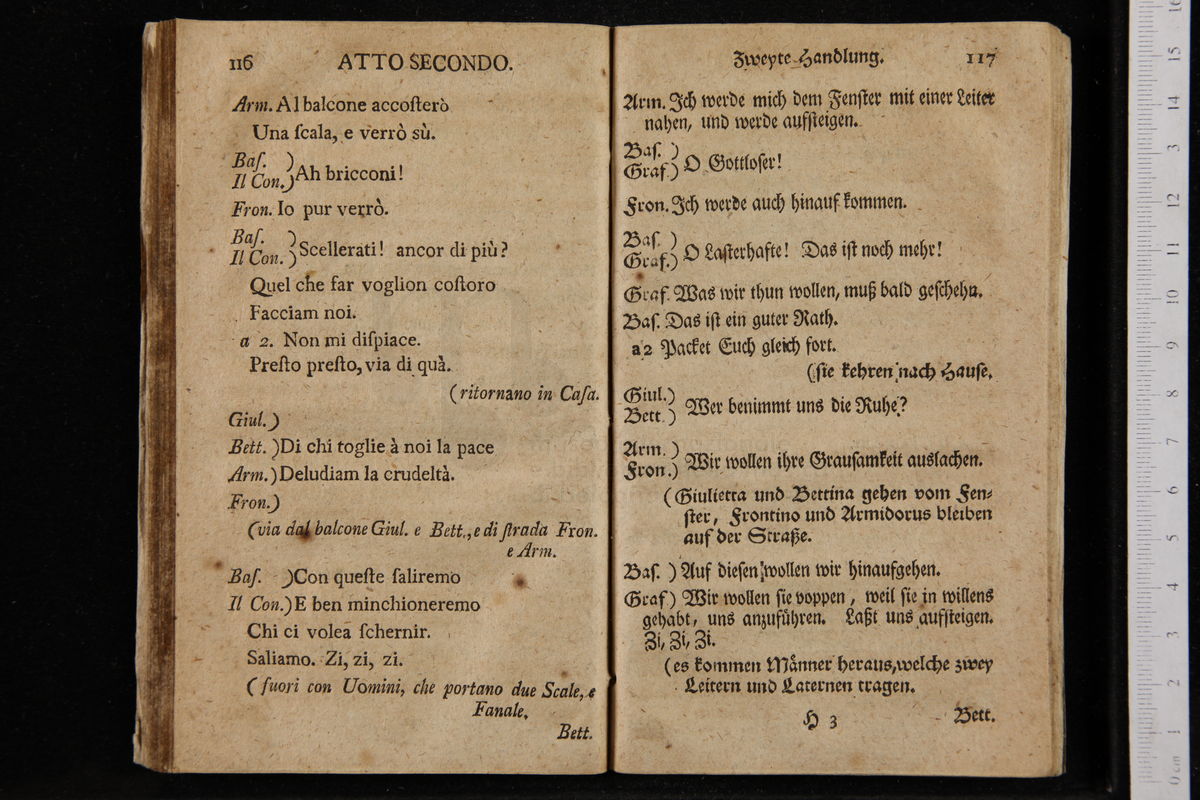 116 ATTO SECONDO.
Arm. Al balcone accoſterò
Una ſcala, e verrò sù.
Baſ. )
Il Con.) Ah bricconi!
Fron. Io pur verrò.
Baſ. )
Il Con. ) Scellerati! ancor di più?
Quel che far voglion coſtoro
Facciam noi.
a 2. Non mi diſpiace.
Preſto preſto, via di quà.
(ritornano in Caſa.
Giul.)
Bett. )Di chi toglie à noi la pace
Arm.)Deludiam la crudeltà.
Fron.)
(via dal balcone Giul. e Bett., e di ſtrada Fron.
e Arm.
Baſ. )Con queſte ſaliremo
Il Con.)E ben minchioneremo
Chi ci volea ſchernir.
Saliamo. Zi, zi, zi.
(fuori con Uomini, che portano due Scale, e
Fanale.
Bett.
Zweyte Handlung. 117
Arm. Ich werde mich dem Fenſter mit einer Leiter
nahen, und werde aufſteigen.
Baſ. )
Graf.) O Gottloſer!
Fron. Ich werde auch hinauf kommen.
Baſ. )
Graf.) O Laſterhafte! Das iſt noch mehr!
Graf. Was wir thun wollen, muß bald geſchehn.
Baſ. Das iſt ein guter Rath.
a 2 Packet Euch gleich fort.
(ſie kehren nach Hauſe.
Giul.)
Bett.) Wer benimmt uns die Ruhe?
Arm. )
Fron.) Wir wollen ihre Grauſamkeit auslachen.
(Giulietta und Bettina gehen vom Fen⸗
ſter, Frontino und Armidorus bleiben
auf der Straße.
Baſ. ) Auf dieſen wollen wir hinaufgehen.
Graf) Wir wollen ſie voppen, weil ſie in willens
gehabt, uns anzuführen. Laßt uns aufſteigen.
Zi, Zi, Zi.
(es kommen Männer heraus, welche zwey
Leitern und Laternen tragen.
H 3 Bett.
0 cm 1 2 3 4 5 6 7 8 9 10 11 12 13 14 15 16